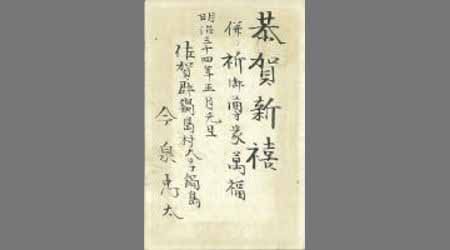 恭賀新禧
併祈御尊家萬福
明治三十四年正月元旦
佐賀縣鍋島村大字鍋島
今泉 太